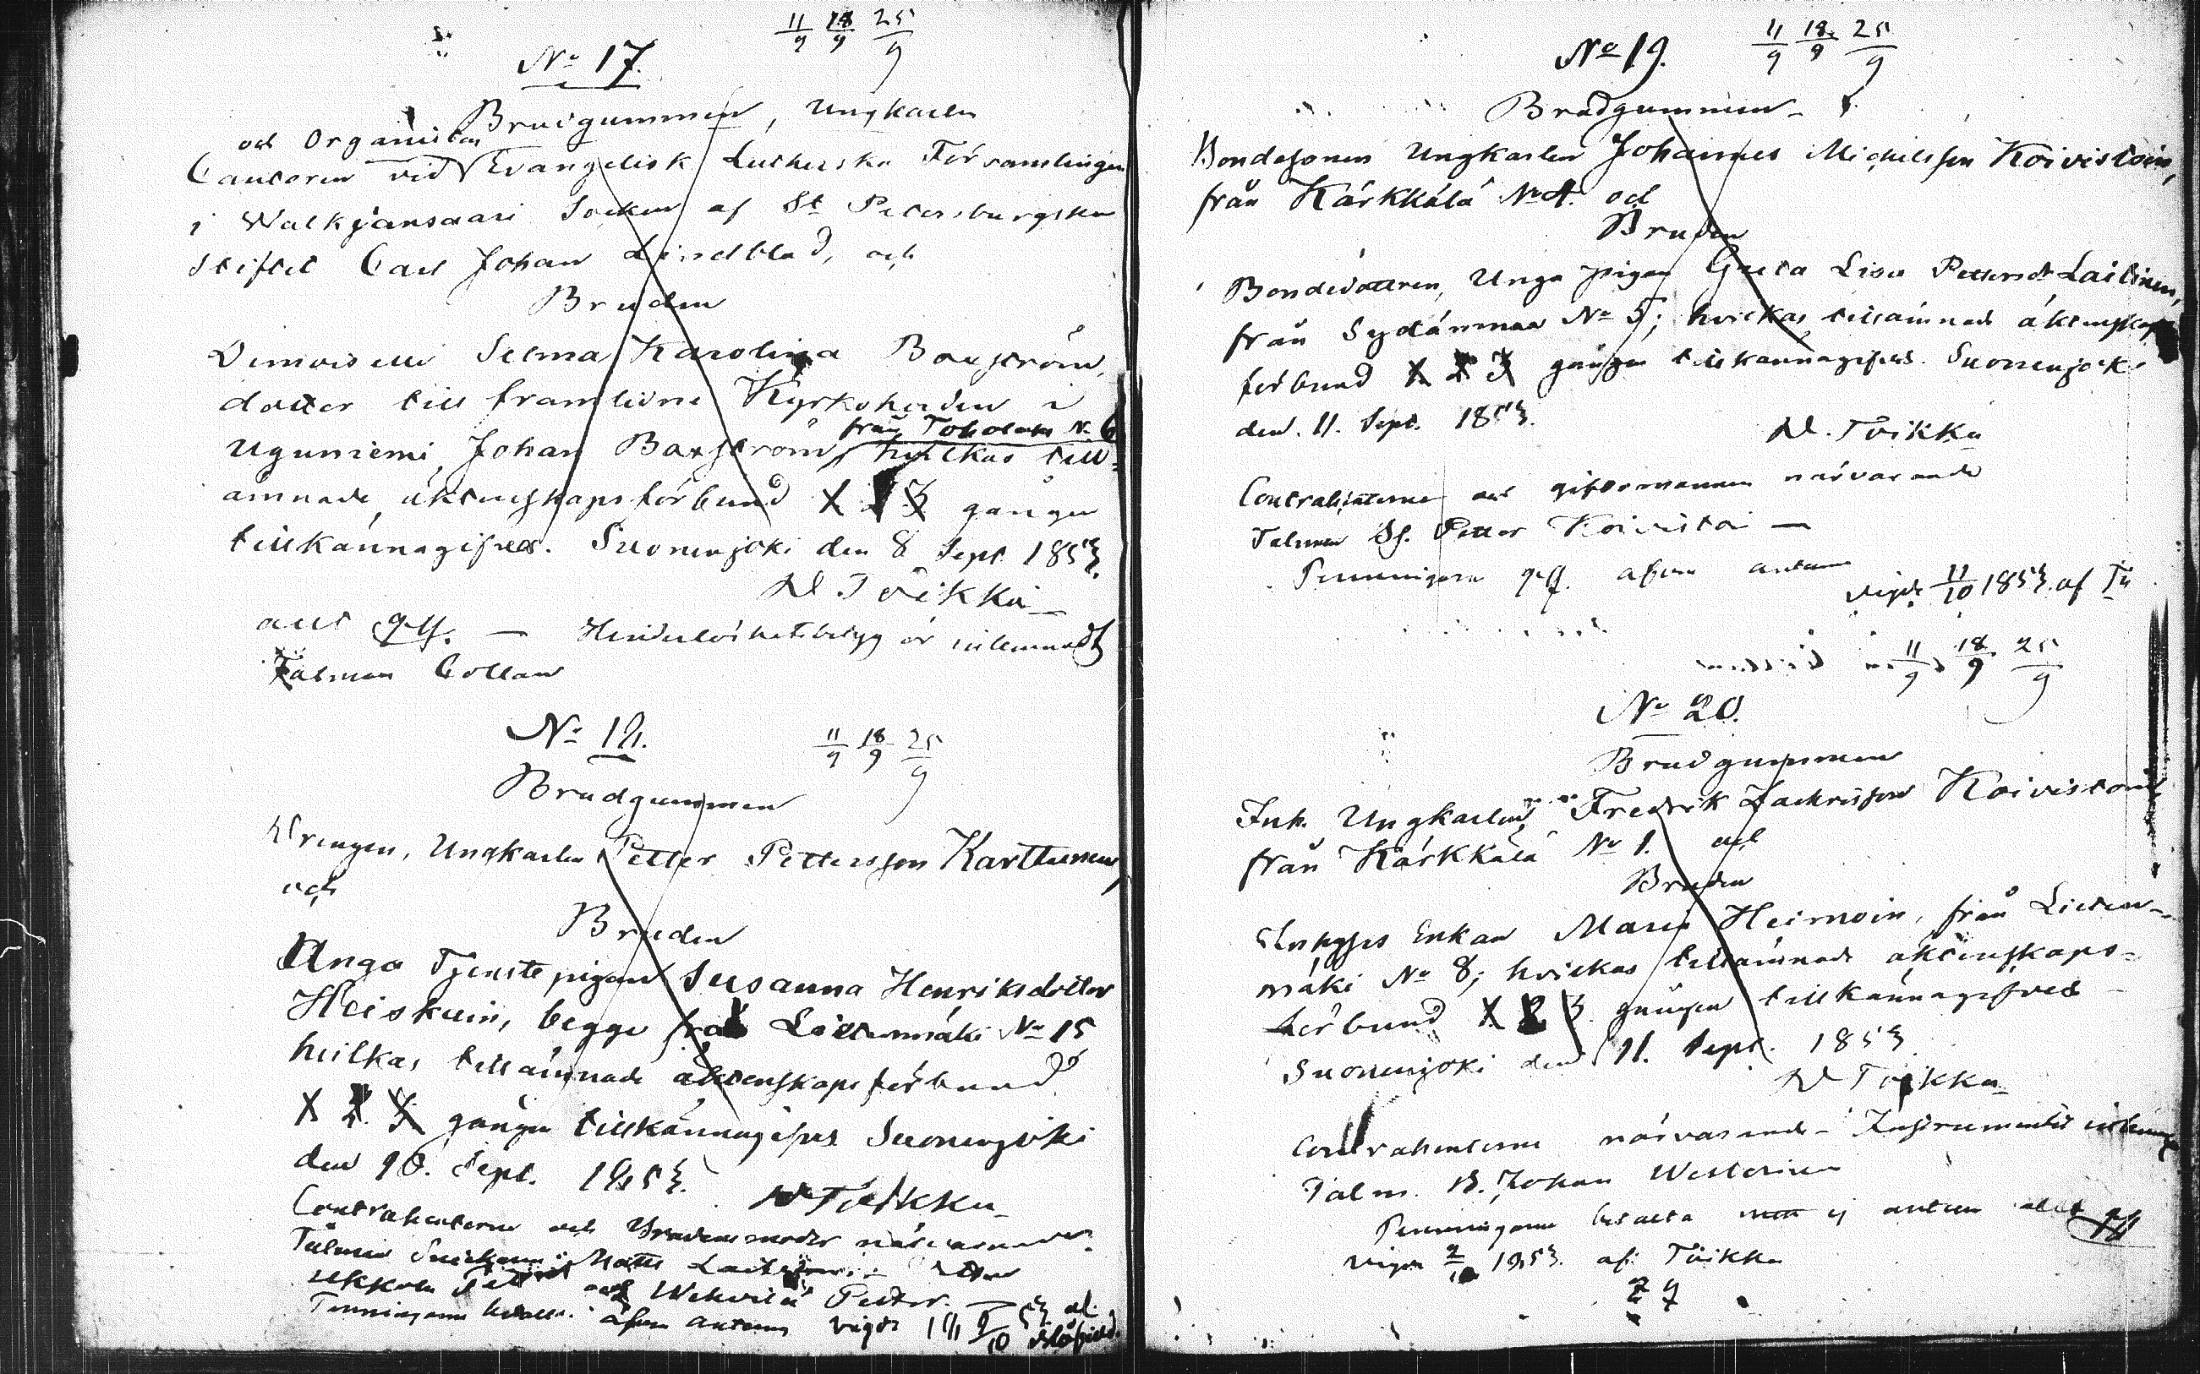 11/9 18/9 25/9
No 17.
Brudgummen, Ungkarlen
och Organisten
Cantoren vid Evangelisk Lutherska Församlingen
i Walkjansaari Socken af St Petersburgska
Stiftet Carl Johan Lindblad, och
Bruden
Demoiselle Selma Karolina Boxström,
dotter till framlidne Kyrkoherden i
från Toholax N. 6
Uguniemi Johan Boxström, hvilkas till-
ämnade äktenskapsförbund 1 2 3 gången
tillkännagifves. Suonenjoki den 8 Sept 1853.
Toikka
allt gft. — Hinderlöshetsbetyg är inlemnadt
Talman Collan
No 18.
11/9 18/9 25/9
Brudgummen
Drengen, Ungkarlen Petter Pettersson Karttunen,
och
Bruden
Unga Tjenstepigan Susanna Henriksdotter
Heiskein, begge från Lietenmäki No 15
hvilkas tillämnade äktenskapsförbund
1 2 3 gången tillkännagifves Suonenjoki
den 10. Sept. 1853.
Toikka
Contrahenterne och Brudens moder närvarande.
Talman Matts
Ukkola Petter och Wehvilä Petter.
Penningarne betalte äfven vigde 18 9/10 53 af
11/9 18/9 25/9
No 19.
Brudgummen
Bondesonen Ungkarlen Johannes Michelsson Koivistoin,
från Kärkkälä No 4. och
Bruden
Bondedottren, Unga pigan Greta Lisa Pettersdr Laitinen,
från Sydänmaa No 5; hvilkas tillämnade äktenskaps
förbund 1 2 3 gången tillkännagifves. Suonenjoki
den 11. Sept. 1853.
Toikka
Contrahenterne och giftomannen närvarande
Talman Petter Koivistoi —
Penningarne gft. äfven
vigde 11/10 1853 af
11/9 18/9 25/9
No 20.
Brudgummen
Inh. Ungkarlen Fredrik Zachrisson Koivistoin
från Kärkkälä No 1. och
Bruden
Inhyses Enkan Maria Heimoin, från Lieten-
mäki No 8; hvilkas tillämnade äktenskaps-
förbund 1 2 3 gången tillkännagifves
Suonenjoki den 11. Sept. 1853
Toikka
Contrahenterne närvarande - Instrumentet
Talm. B. Johan Westerinen
Penningarne betalta ej allt gft
vigde 2/10 1853 af Toikka